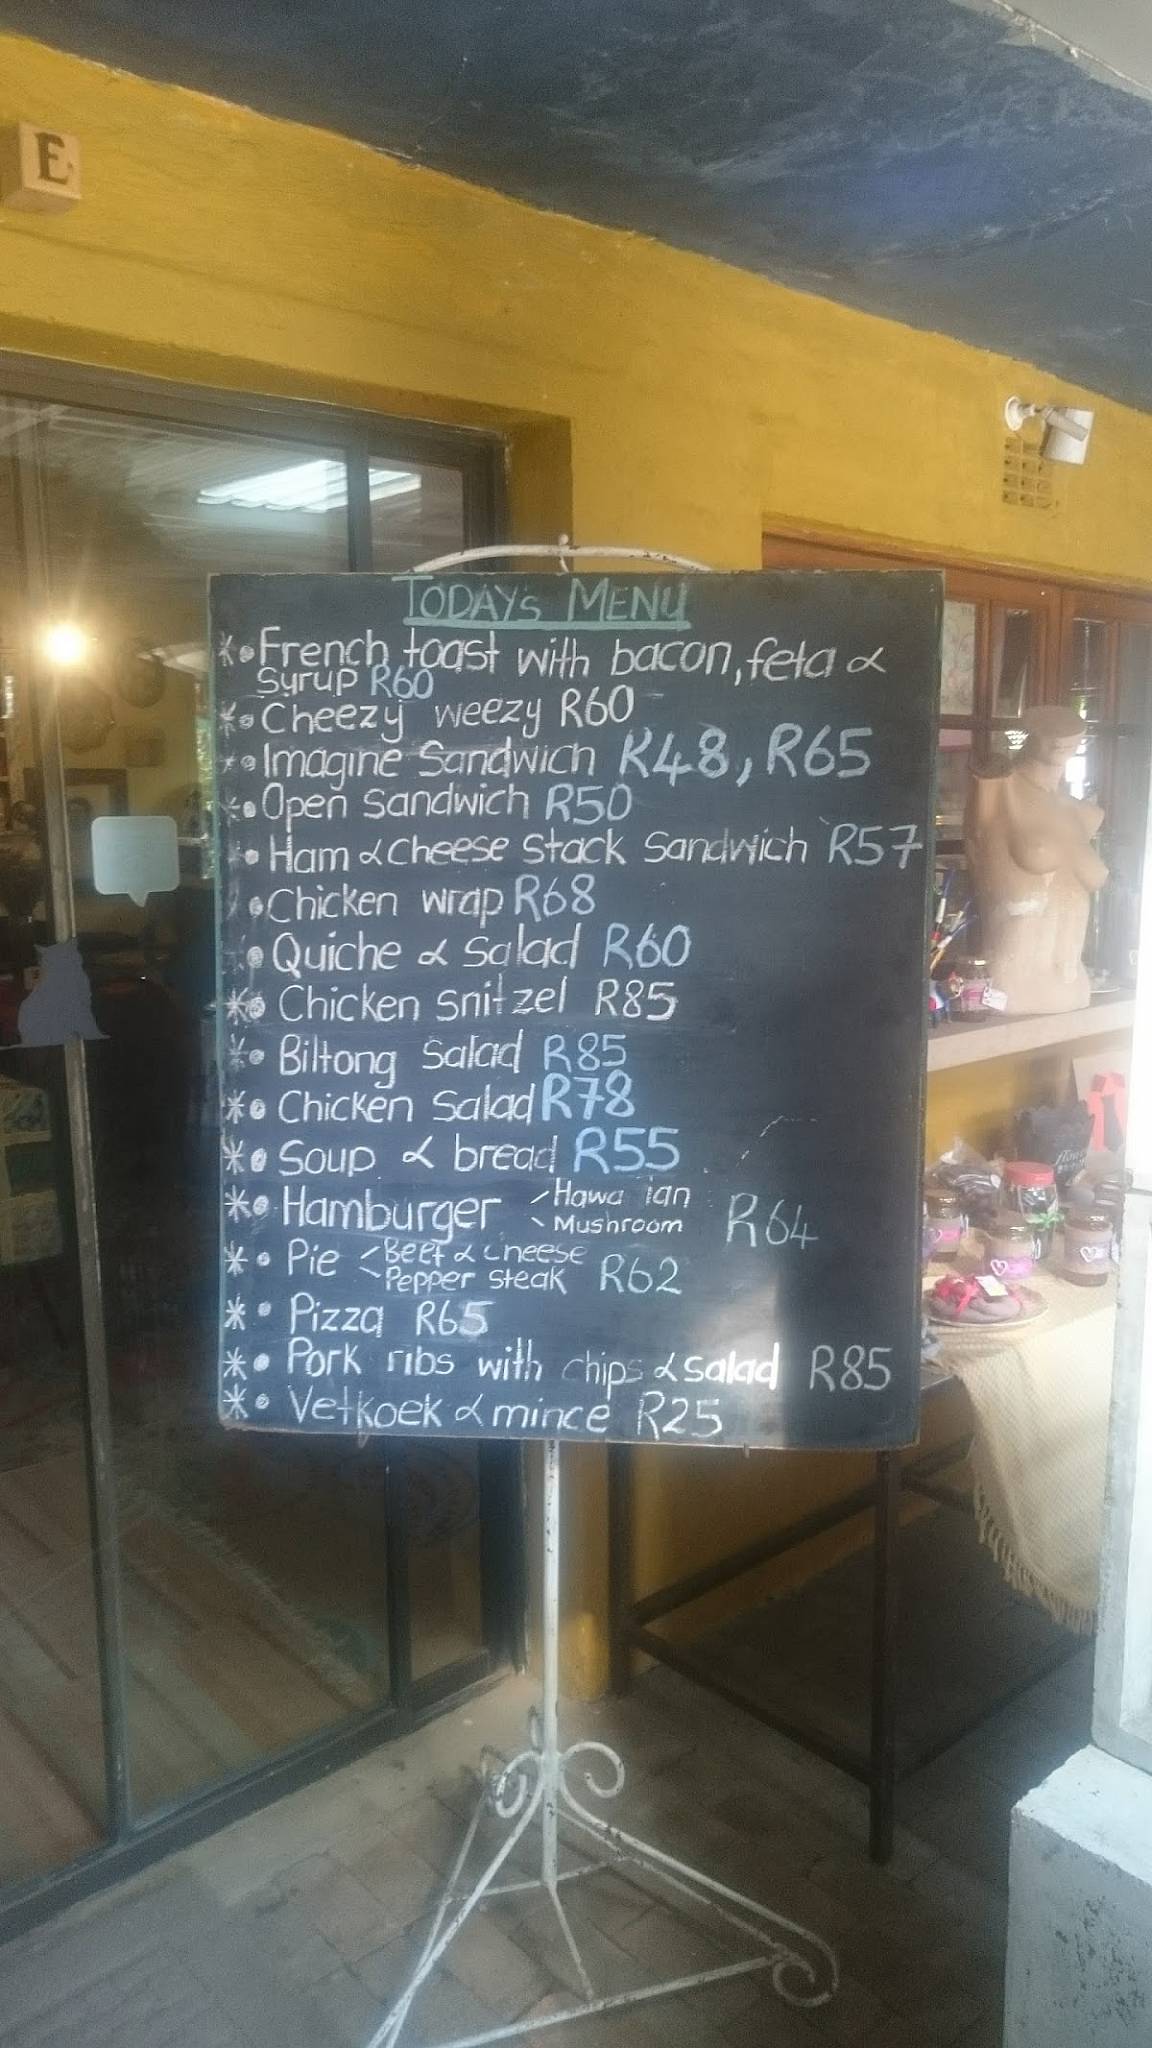 E
TODAY's MENU
*• French toast with bacon, feta &
syrup R60
*• Cheezy weezy R60
*• Imagine Sandwich R48, R65
*• Open Sandwich R50
*• Ham & cheese Stack Sandwich R57
*• Chicken wrap R68
*• Quiche & Salad R60
*• Chicken snitzel R85
*• Biltong Salad R85
*• Chicken Salad R78
*• Soup & bread R55
*• Hamburger Hawa ian
Mushroom R64
*• Pie Beef & cheese
Pepper steak R62
*• Pizza R65
*• Pork ribs with chips & salad R85
*• Vetkoek & mince R25